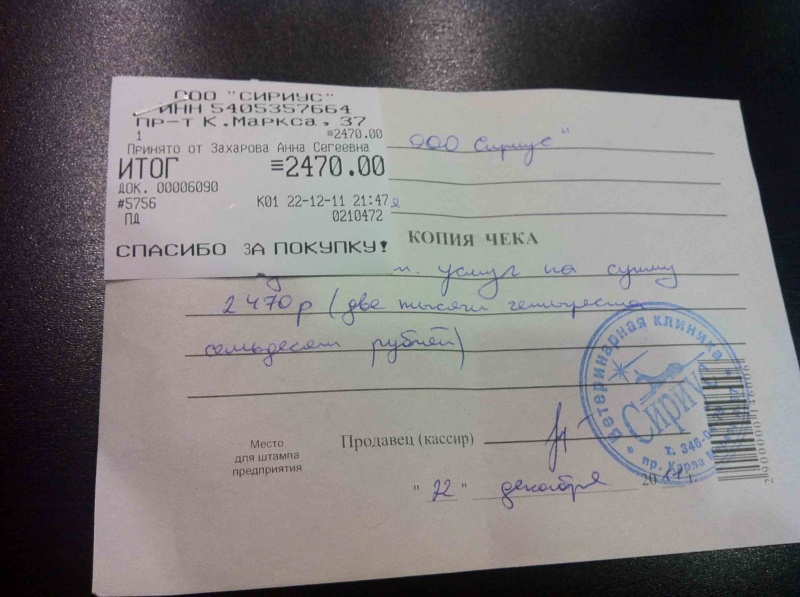 ООО "СИРИУС"
ИНН 5405357664
ПР-Т К.Маркса, 37
1 ≡2470.00
Принято от Захарова Анна Сегеевна
ИТОГ ≡2470.00
ДОК. 00006090
#5756 К01 22-12-11 21:47
ПД 0210472
СПАСИБО ЗА ПОКУПКУ!
ООО Сириус"
КОПИЯ ЧЕКА
услуг на сумму
2470р (две тысячи четыреста
семьдесят рублей)
Ветеринарная клиника
Сириус
т. 346-0
пр. Карла
Место
для штампа
предприятия
Продавец (кассир)
"22" декабря 2011 г.